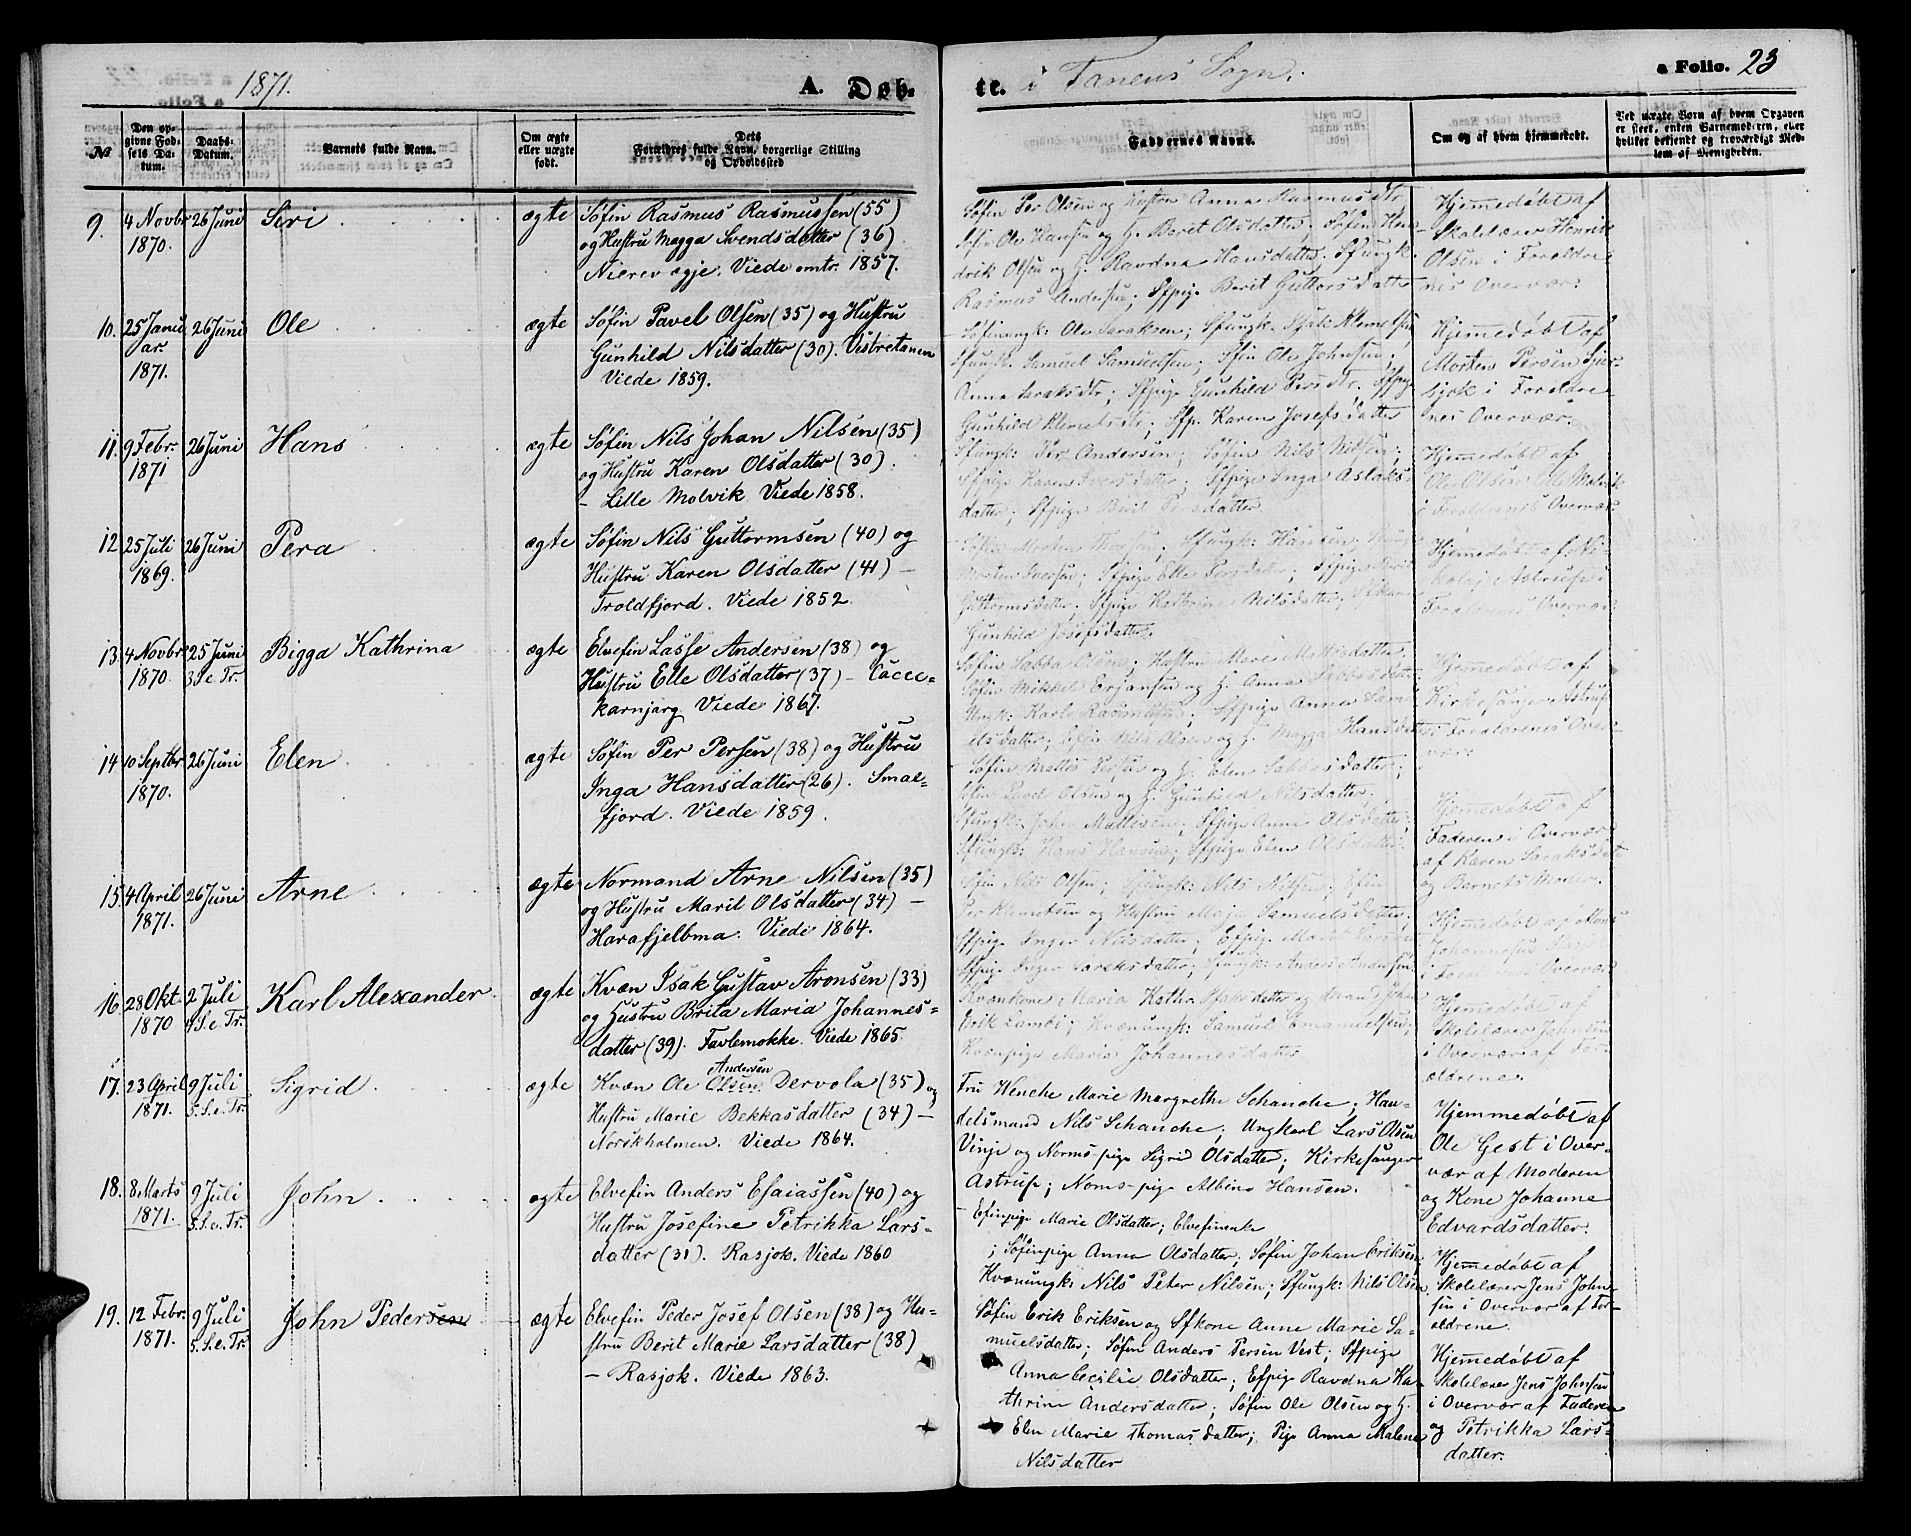 1871. A. Døb-
te. i Tanens Sogn. a Folio. 23
№ Den opgivne Fødsels Datum. Daabs-Datum. Barnets fulde Navn. Om ægte eller uægte født. Dets Forældres fulde Navn, borgerlige Stilling og Opholdssted
Faddernes Navne. Om og af hvem hjemmedøbt. Ved uægte Børn af hvem Opgaven er skeet, enten Barnemoderen, eller hvilket bekjendt og troværdigt Medlem af Menigheden.
9. 4 Novbr 26 Juni Siri ægte Søfin Rasmus Rasmussen (55)
1870. og Hustru Magga Svendsdatter (36)
Nierevægje. Viede omtr. 1857.
Søfin Per Olsen og Hustru Anna Rasmusdtr,
Søfin Ole Hansen og H. Berit Olsdatter; Søfin Hen-
drik Olsen og H. Ravdna Hansdatter; Sfungk.
Rasmus Andersen; Sfpige Berit Guttorsdatter
Hjemmedøbt af
Skolelærer Henrik
Olsen i Foreldre-
nes Overvær.
10. 25 Janu- 26 Juni Ole ægte Søfin Pavel Olsen (35) og Hustru
ar. Gunhild Nilsdatter (30). Vestretanen
1871. Viede 1859.
Søfinungk: Ole Saraksen; Sfungk.
Sfungk. Samuel Samuelsen; Sfin Ole Johnsen;
Anna Saraksdtr; Sfpige Gunhild Persdtr. Sfpige
Gunhild Klemetsdtr; Sfp. Karen Josefsdatter
Hjemedøbt af
Morten Persen
i Foreldre-
nes Overvær.
11. 9 Febr. 26 Juni Hans ægte Søfin Nils Johan Nilsen (35)
1871 og Hustru Karen Olsdatter (30).
- Lille Molvik Viede 1858.
Sfungk: Per Andersen; Søfin Nils Nilsen;
Sfpige Karen Iversdatter; Sfpige Inga Aslaks-
datter; Sfpige Berit Persdatter
Hjemedøbt af
Ole Olsen Lille Molvik
i Foreldrenes Overvær
12 25 Juli 26 Juni Pera ægte Søfin Nils Guttormsen (40) og
1869. Hustru Karen Olsdatter (41) -
Troldfjord. Viede 1852.
Søfin Morten
Morten Iversen; Sfpige Elle Persdatter; Sfpige Berit
Guttormsdatter; Sfpige Kathrine Nilsdatter;
Gunhild Josefsdatter.
Hjemedøbt af Ni-
kolaj Astrup i
Foreldrenes Overvær
13 4 Novbr. 25 Juni Bigga Kathrina ægte Elvefin Lasse Andersen (38) og
1870. 3 S. e. Tr. Hustru Elle Olsdatter (37) -
karnjarg Viede 1867.
Søfin Sabba Olsen; Hustru Mari Mathisdatter,
Søfin Mikkel Ersansen og H. Anna Sabbasdatter
Ungk: Karl Rasmussen; Sfpige Anna Samu-
elsdatter; Søfin Nils Olsen og H. Magga Hansdatter
Hjemedøbt af
Kirkesanger Astrup
i Foreldrenes Over-
vær.
14 10 Septbr 26 Juni Elen ægte Søfin Per Persen (38) og Hustru
1870. Inga Hansdatter (26). Smal-
fjord. Viede 1859.
Søfin Mattis Persen og H. Elen Sabbasdatter;
Søfin Pavel Olsen og H. Gunhild Nilsdatter.
Sfungk: John Mattisen; Sfpige Anna Olsdatter,
Sfungk: Hans Hansen; Sfpige Elen Olsdatter
Hjemedøbt af
Faderen i Overvær
af Karen Saraksdatt
og Barnets Moder.
15 4 April 26 Juni Arne ægte Normand Arne Nilsen (35)
1871. og Hustru Marit Olsdatter (34) -
Harafjelbma. Viede 1864.
Søfin Nils Olsen; Sfungk: Nils Nilsen; Søfin
Per Klemetsen og Hustru Maja Samuelsdatter;
Sfpige Inger Nilsdatter;
Sfpige Inger Saraksdatter; Sfungk: Anders Andersen
Hjemedøbt af
Johannesen
i Foreldrenes Overvær
16 28 Okt 2 Juli Karl Alexander ægte Kvæn Isak Gustav Aronsen (33)
1870 4 S. e. Tr. og Hustru Brita Maria Johannes-
datter (39). Favlemokke. Viede 1865.
Kvænkone Maria Kathr. Isaksdatter og
Erik Lambi; Kvænungk: Samuel Emanuelsen;
Kvænpige Maria Johannesdatter
Hjemedøbt af
Skolelærer Johnsen
i Overvær af For-
ældrene.
Andersen
17. 23 April 9 Juli Sigrid ægte Kvæn Ole Olsen Dervola (35) og
1871. 5. S. e. Tr. Hustru Marie Bekkasdatter (34) -
Norskholmen. Viede 1864.
Fru Wenche Marie Margrethe Schanche; Han-
delsmand Nils Schanche; Ungkarl Lars Olsen
Vinje og Norms-pige Sigrid Olsdatter; Kirkesanger
Astrup; Norns-pige Albine Hansen.
Hjemmedøbt af
Ole Gest i Over-
vær af Moderen
og Kone Johanne
Edvardsdatter.
18. 8 Marts 9 Juli John ægte Elvefin Anders Esaiassen (40) og
1871. 5. S. e. Tr. Hustru Josefine Petrikka Lars-
datter (31). Rasjok. Viede 1860
Efinpige Marie Olsdatter; Elvefinenke
; Søfinpige Anna Olsdatter; Søfin Johan Eriksen,
Kvænungk: Nils Peter Nilsen; Sfungk: Nils Olsen
Hjemedøbt af
Skolelærer Jens John-
sen i Overvær af For-
ældrene.
19. 12 Febr. 9 Juli John Pedersen ægte Elvefin Peder Josef Olsen (38) og Hu-
1871. 5. S. e. Tr. stru Berit Marie Larsdatter (38)
- Rasjok. Viede 1863.
Søfin Erik Eriksen og Sfkone Anne Marie Sa-
muelsdatter; Søfin Anders Persen Vest; Sfpige
Anna Cecilie Olsdatter; Efpige Ravdna Ka-
thrine Andersdatter; Søfin Ole Olsen og H.
Elen Marie Thomasdatter; Pige Anna Malene
Nilsdatter
Hjemedøbt af
Skolelærer Jens Johnsen
i Overvær af Faderen
og Petrikka Lars-
datter.